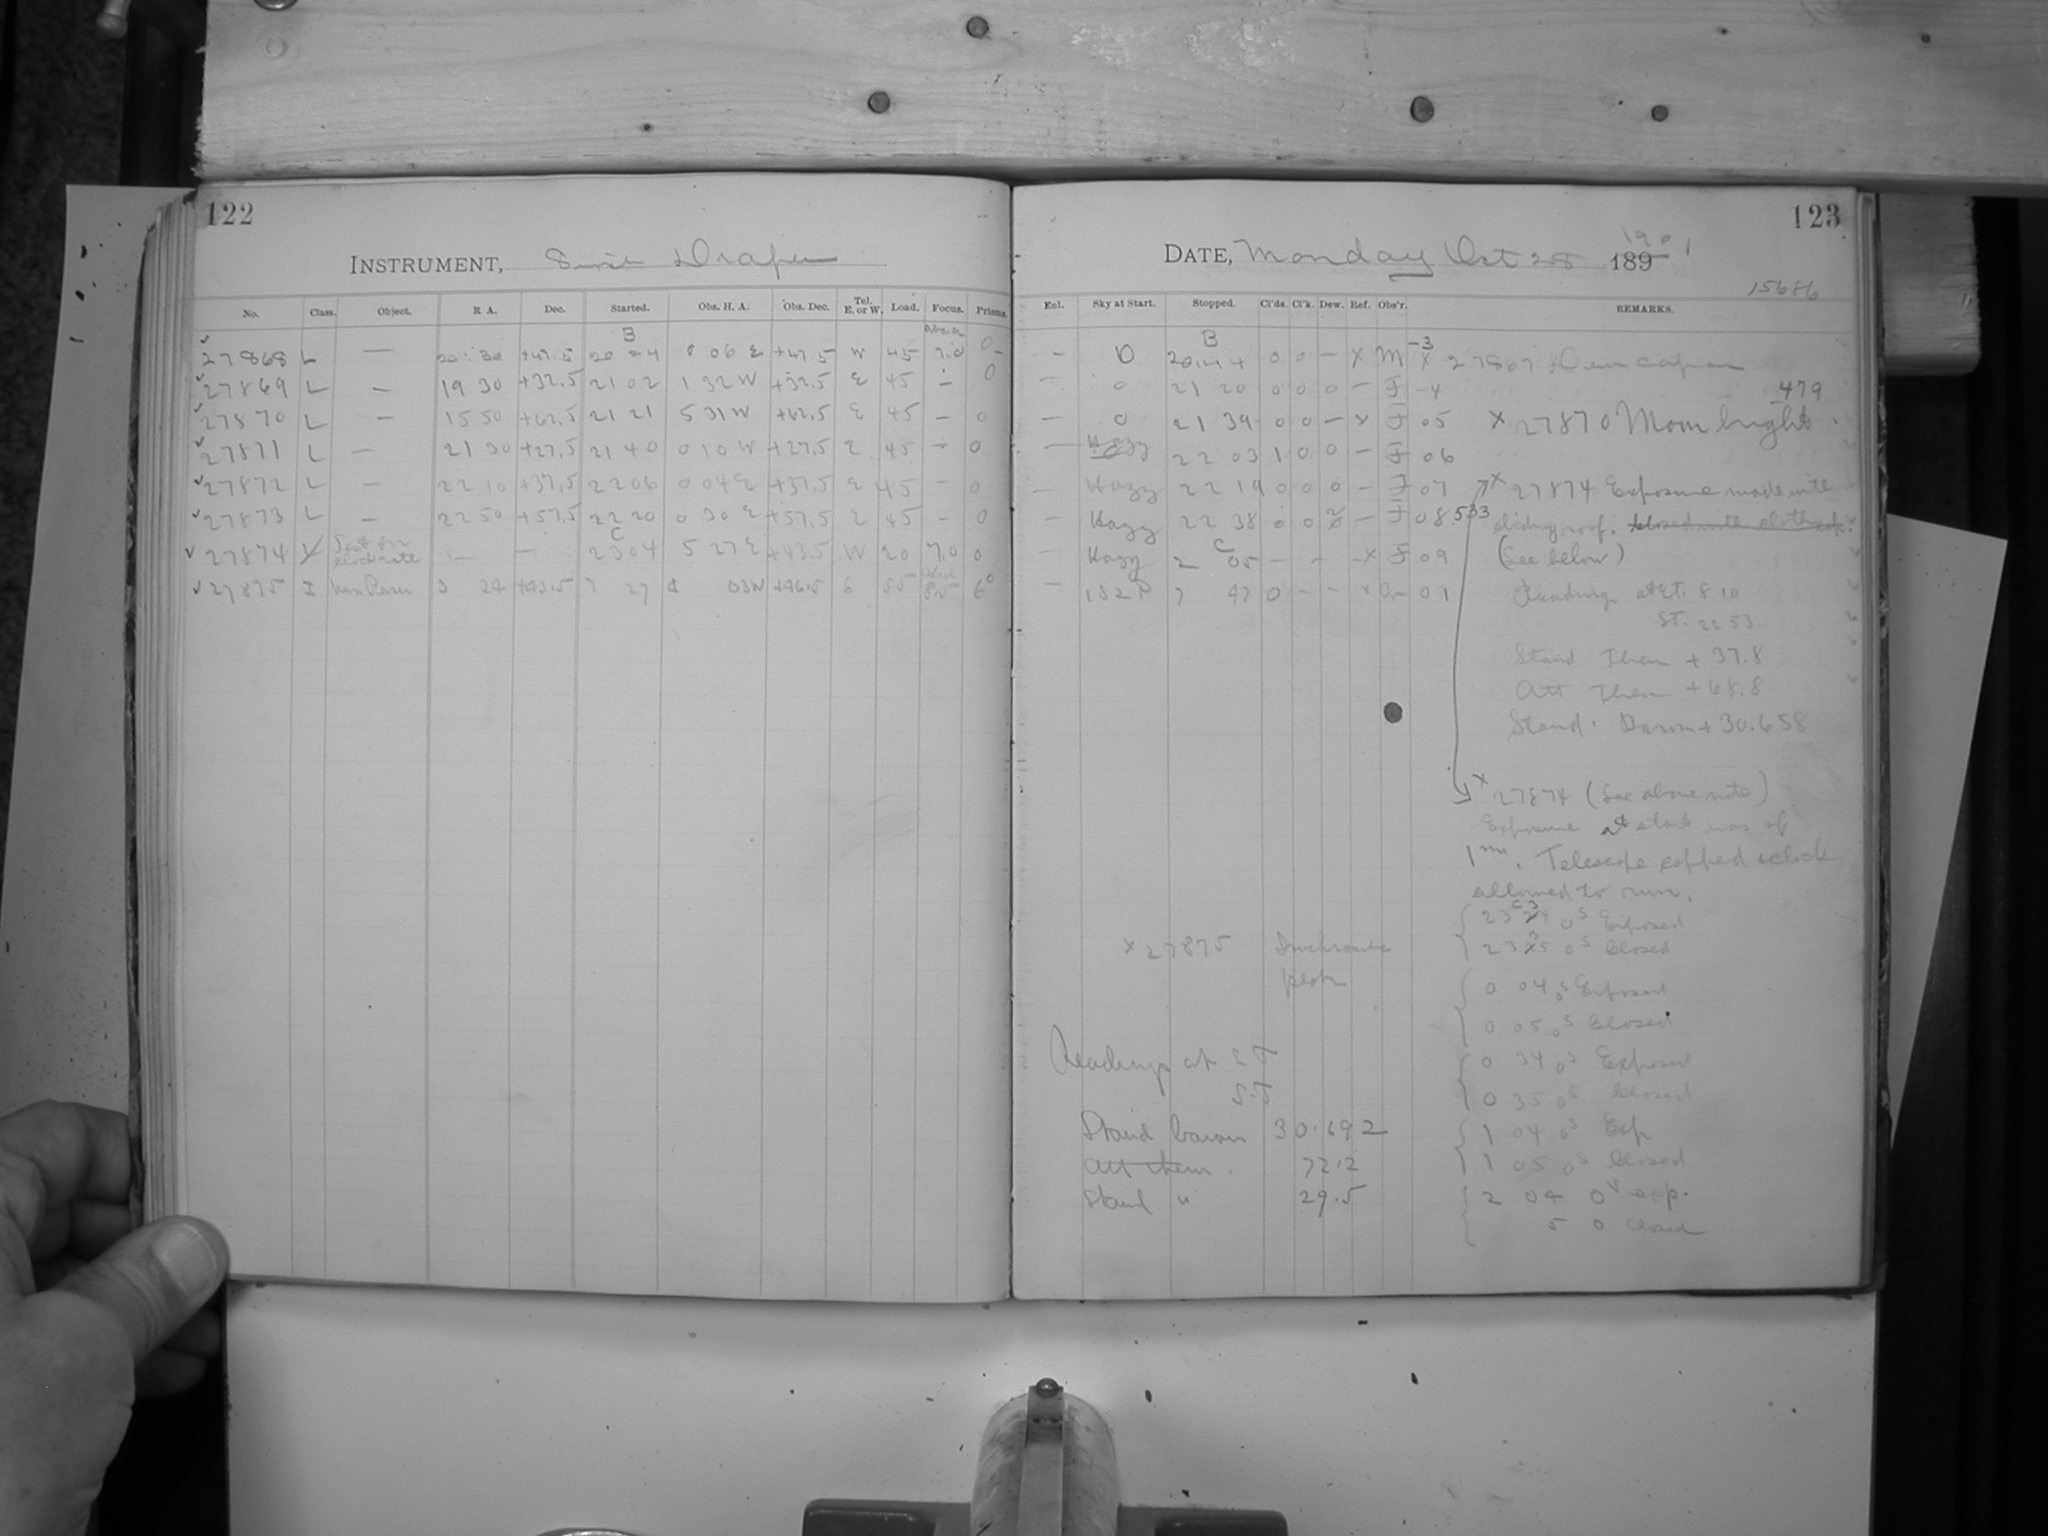 122
INSTRUMENT, Draper
No. Class. Object. R. A. Dec. Started. Obs. H. A. Obs. Dec. Tel. E. or W. Load. Focus. Prisms.
B
27868 L — 20 30 +47.5 20 24 0 06 E +47.5 W 45 7.0 0
27869 L — 19 30 +32.5 21 02 1 32 W +32.5 E 45 — 0
27870 L — 15 50 +62.5 21 21 5 31 W +62.5 E 45 — 0
27871 L — 21 30 +27.5 21 40 0 10 W +27.5 E 45 — 0
27872 L — 22 10 +37.5 22 06 0 04 E +37.5 E 45 — 0
27873 L — 22 50 +57.5 22 20 0 30 E +57.5 E 45 — 0
C
27874 — — 23 04 5 27 E +43.5 W 20 7.0 0
27875 I Nova Persei 3 24 +43.5 7 27 4 03 W +46.5 E 55 6°
123
DATE, Monday Oct 28 1901 189
15686
Enl. Sky at Start. Stopped. Cl'ds. Cl'k. Dew. Ref. Obs'r. REMARKS.
B
— 0 20 44 0 0 — x M -3 x 27867 Dew cap on
— 0 21 20 0 0 0 — F -4 479
— 0 21 39 0 0 — x F 05 x 27870 Moon bright.
— Hazy 22 03 1 0 0 — F 06
— Hazy 22 19 0 0 0 — F 07 x 27874 Exposure made with
— Hazy 22 38 0 0 — F 08 533 sliding roof. closed with cloth
C
— Hazy 2 05 — — — x F 09 (See below)
— 1S2P 7 47 0 — — x 01 Reading at Et. 8 10
St. 22 53
Stand Ther + 37.8
Att Ther +68.8
Stand. Barom + 30.658
x 27874 (See above note)
Exposure at start was of
1m. Telescope capped & clock
allowed to run.
23 04 0s Exposed
23 35 0s Closed
x 27875
0 04 0s Exposed
0 05 0s Closed
0 34 0s Exposed
0 35 0s Closed
1 04 0s Exp
1 05 0s Closed
2 04 0s exp.
5 0 Closed
Readings at ET
ST
Stand barom 30.692
Att therm. 72.2
Stand " 29.5